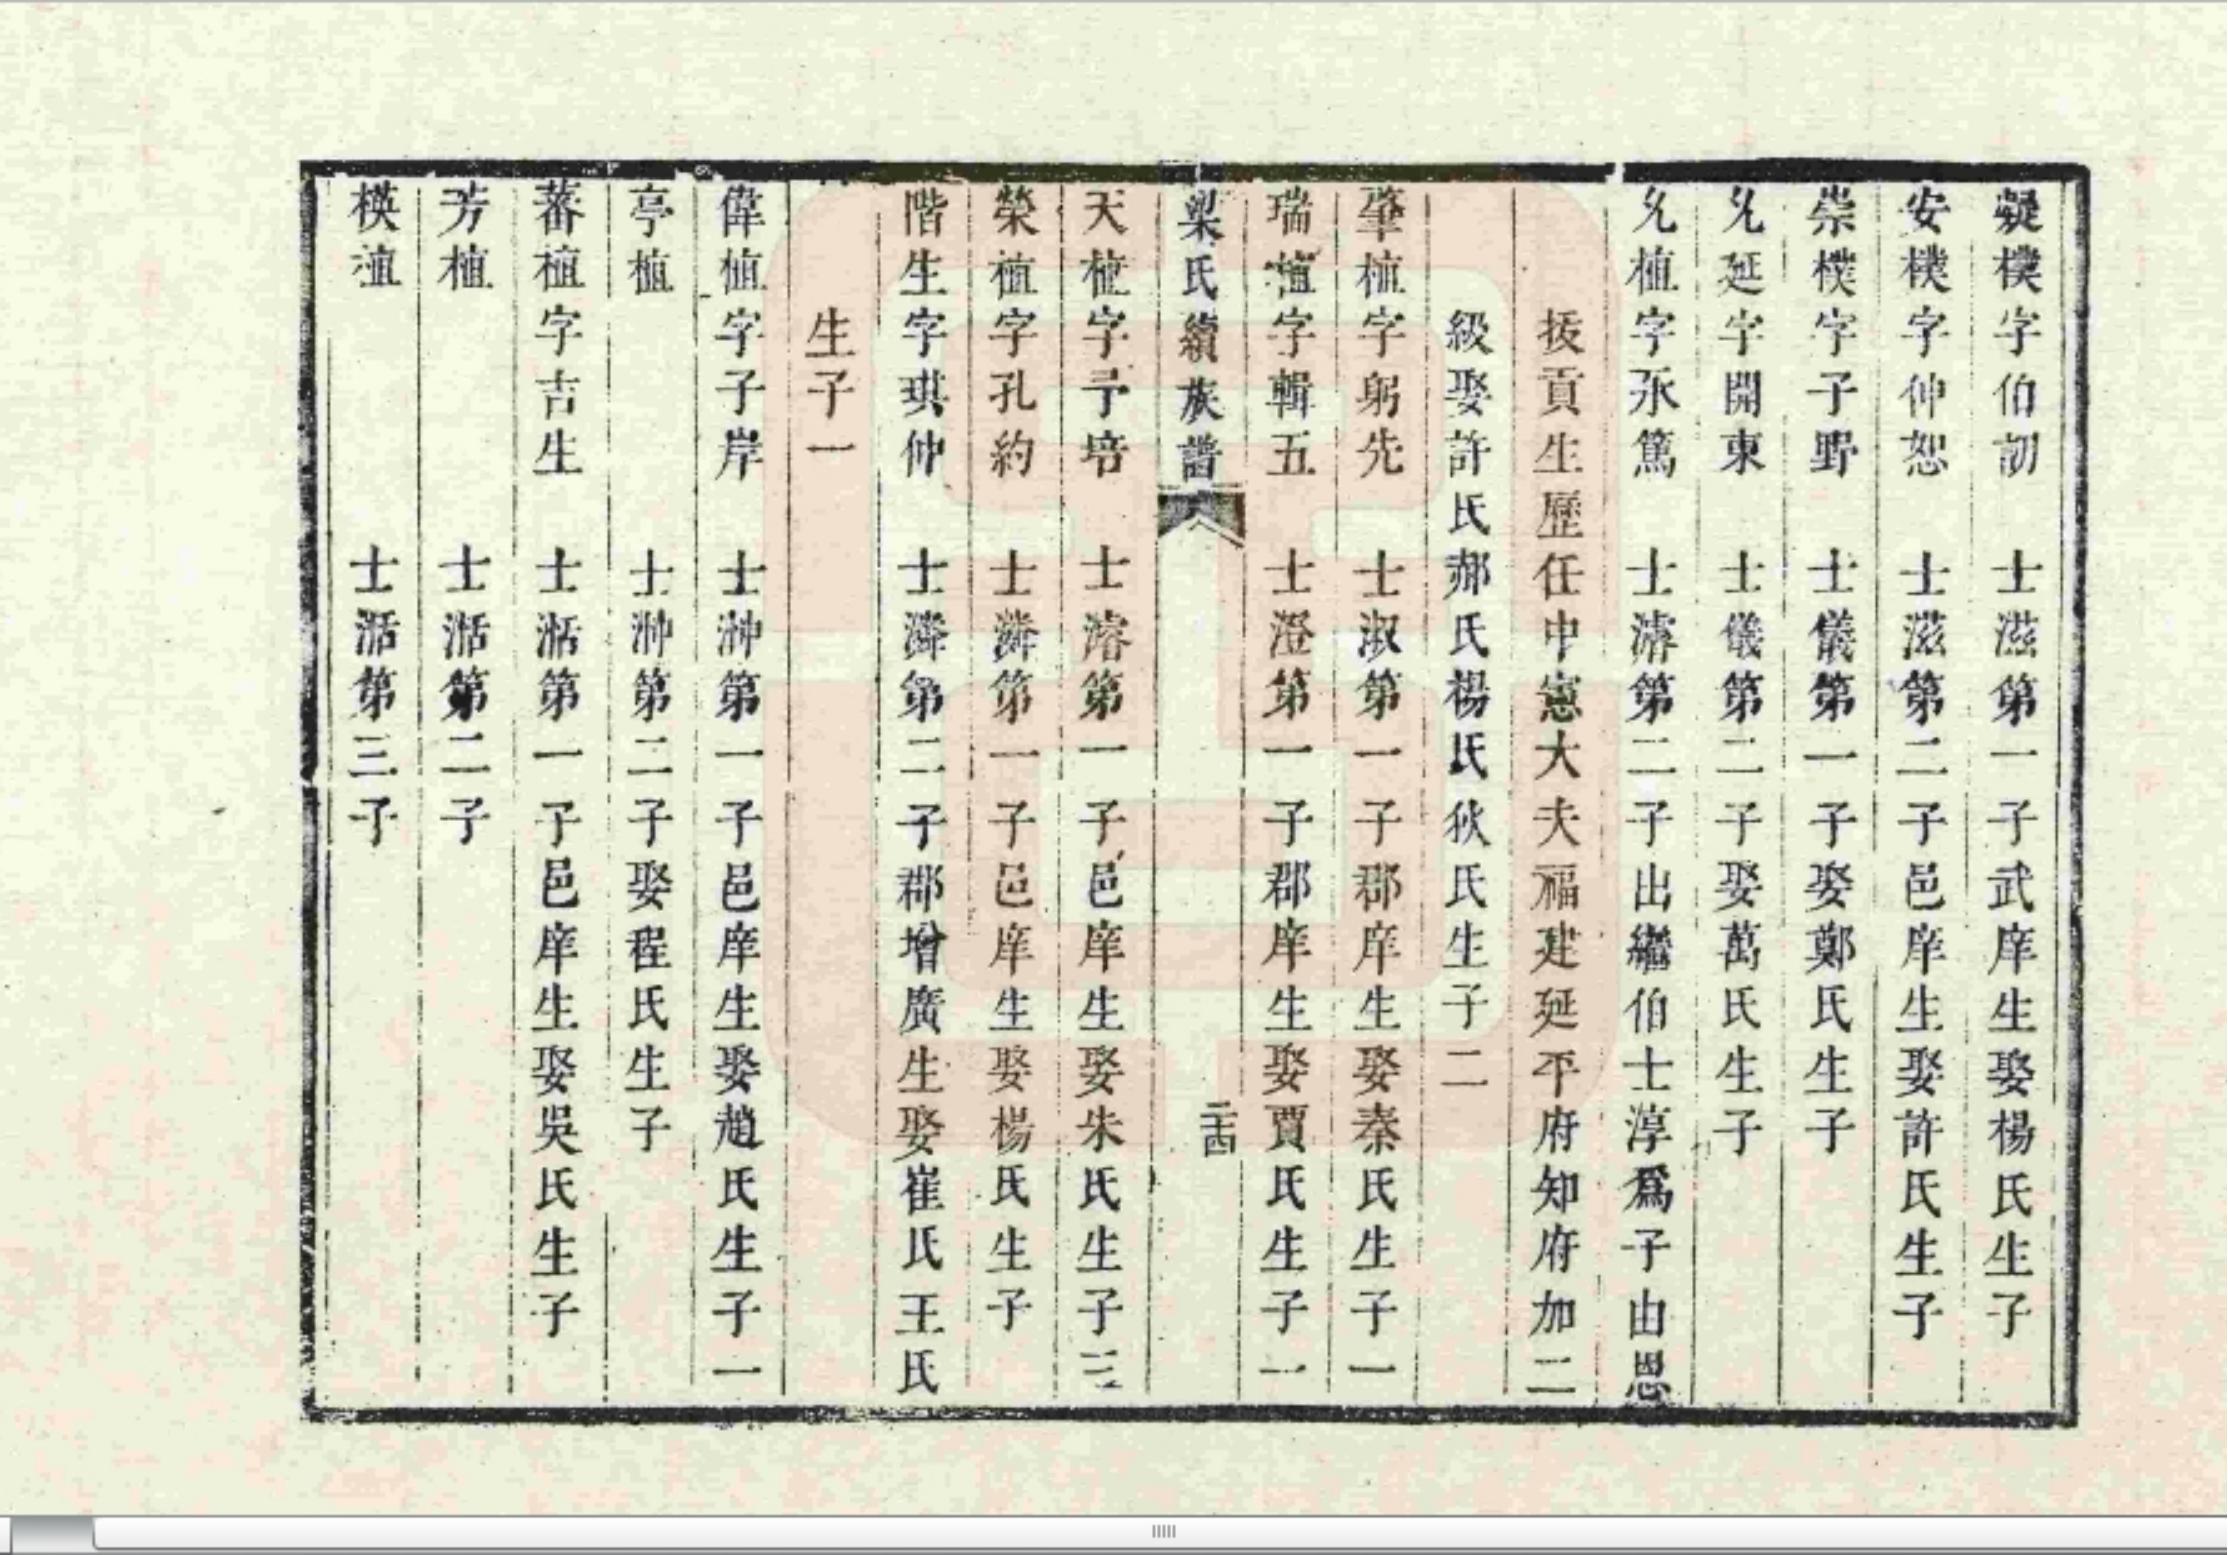 凝樸字伯訒　士滋第一子武庠生娶楊氏生子
安樸字仲恕　士滋第二子邑庠生娶許氏生子
崇樸字子野　士儀第一子娶鄭氏生子
允延字開東　士儀第二子娶萬氏生子
允植字永篤　士濬第二子出繼伯士淳爲子由恩
拔貢生歷任中憲大夫福建延平府知府加二
級娶許氏郝氏楊氏狄氏生子二
肇植字躬先　士淑第一子郡庠生娶秦氏生子一
瑞植字輯五　士澄第一子郡庠生娶賈氏生子一
梁氏續族譜　二十四
天植字予培　士濬第一子邑庠生娶朱氏生子三
榮植字孔約　士潾第一子邑庠生娶楊氏生子
階生字琪仲　士潾第二子郡增廣生娶崔氏王氏
生子一
偉植字子岸　士翀第一子邑庠生娶趙氏生子一
亭植　士翀第二子娶程氏生子
蕃植字吉生　士湉第一子邑庠生娶吳氏生子
芳植　士湉第二子
模植　士湉第三子